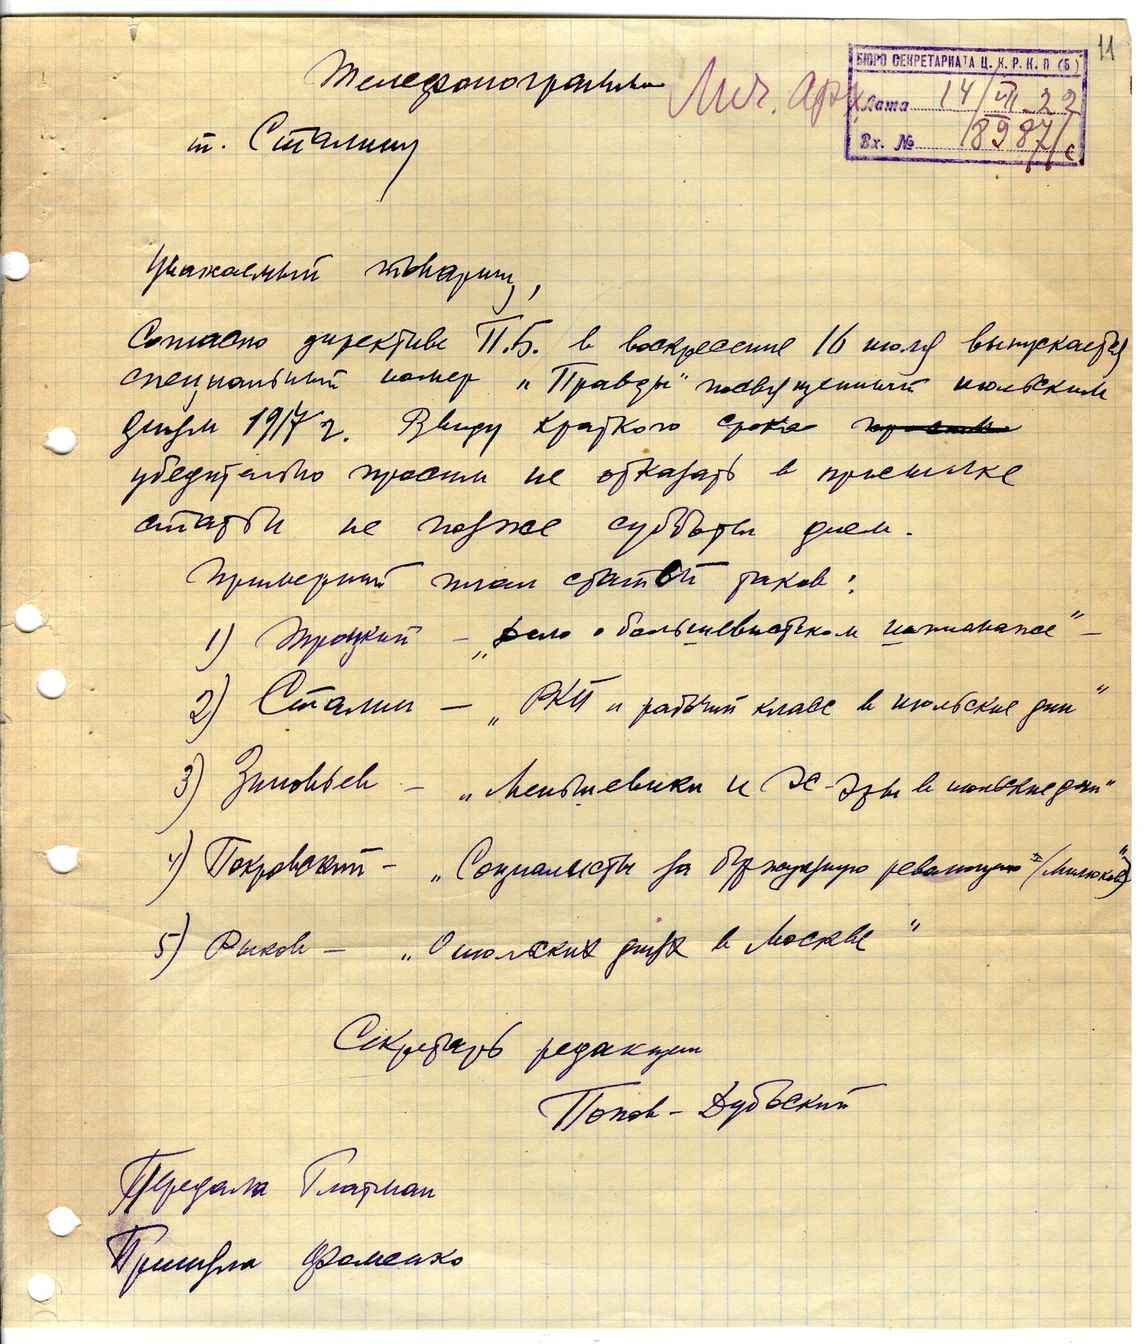 11
Телефонограмма
Лич. арх.
БЮРО СЕКРЕТАРИАТА Ц. К. Р. К. П (Б)
Дата 14/VII 22
Вх. № 18987/с
т. Сталину
Уважаемый товарищ,
Согласно директиве П.Б. в воскресение 16 июля выпускается
специальный номер „Правды" посвященный июльским
дням 1917 г. Ввиду краткого срока
убедительно просим не отказать в присылке
статьи не позже субботы днем.
Примерный план статей таков:
1) Троцкий – „Дело о большевистском шпионаже" –
2) Сталин – „РКП и рабочий класс в июльские дни"
3) Зиновьев – „Меньшевики и Эс-Эры в июльские дни"
4) Покровский – „Социалисты за буржуазную революцию" (Милюков)
5) Рыков – „О июльских днях в Москве"
Секретарь редакции
Попов-Дубовский
Передала Глатман
Приняла Фоменко